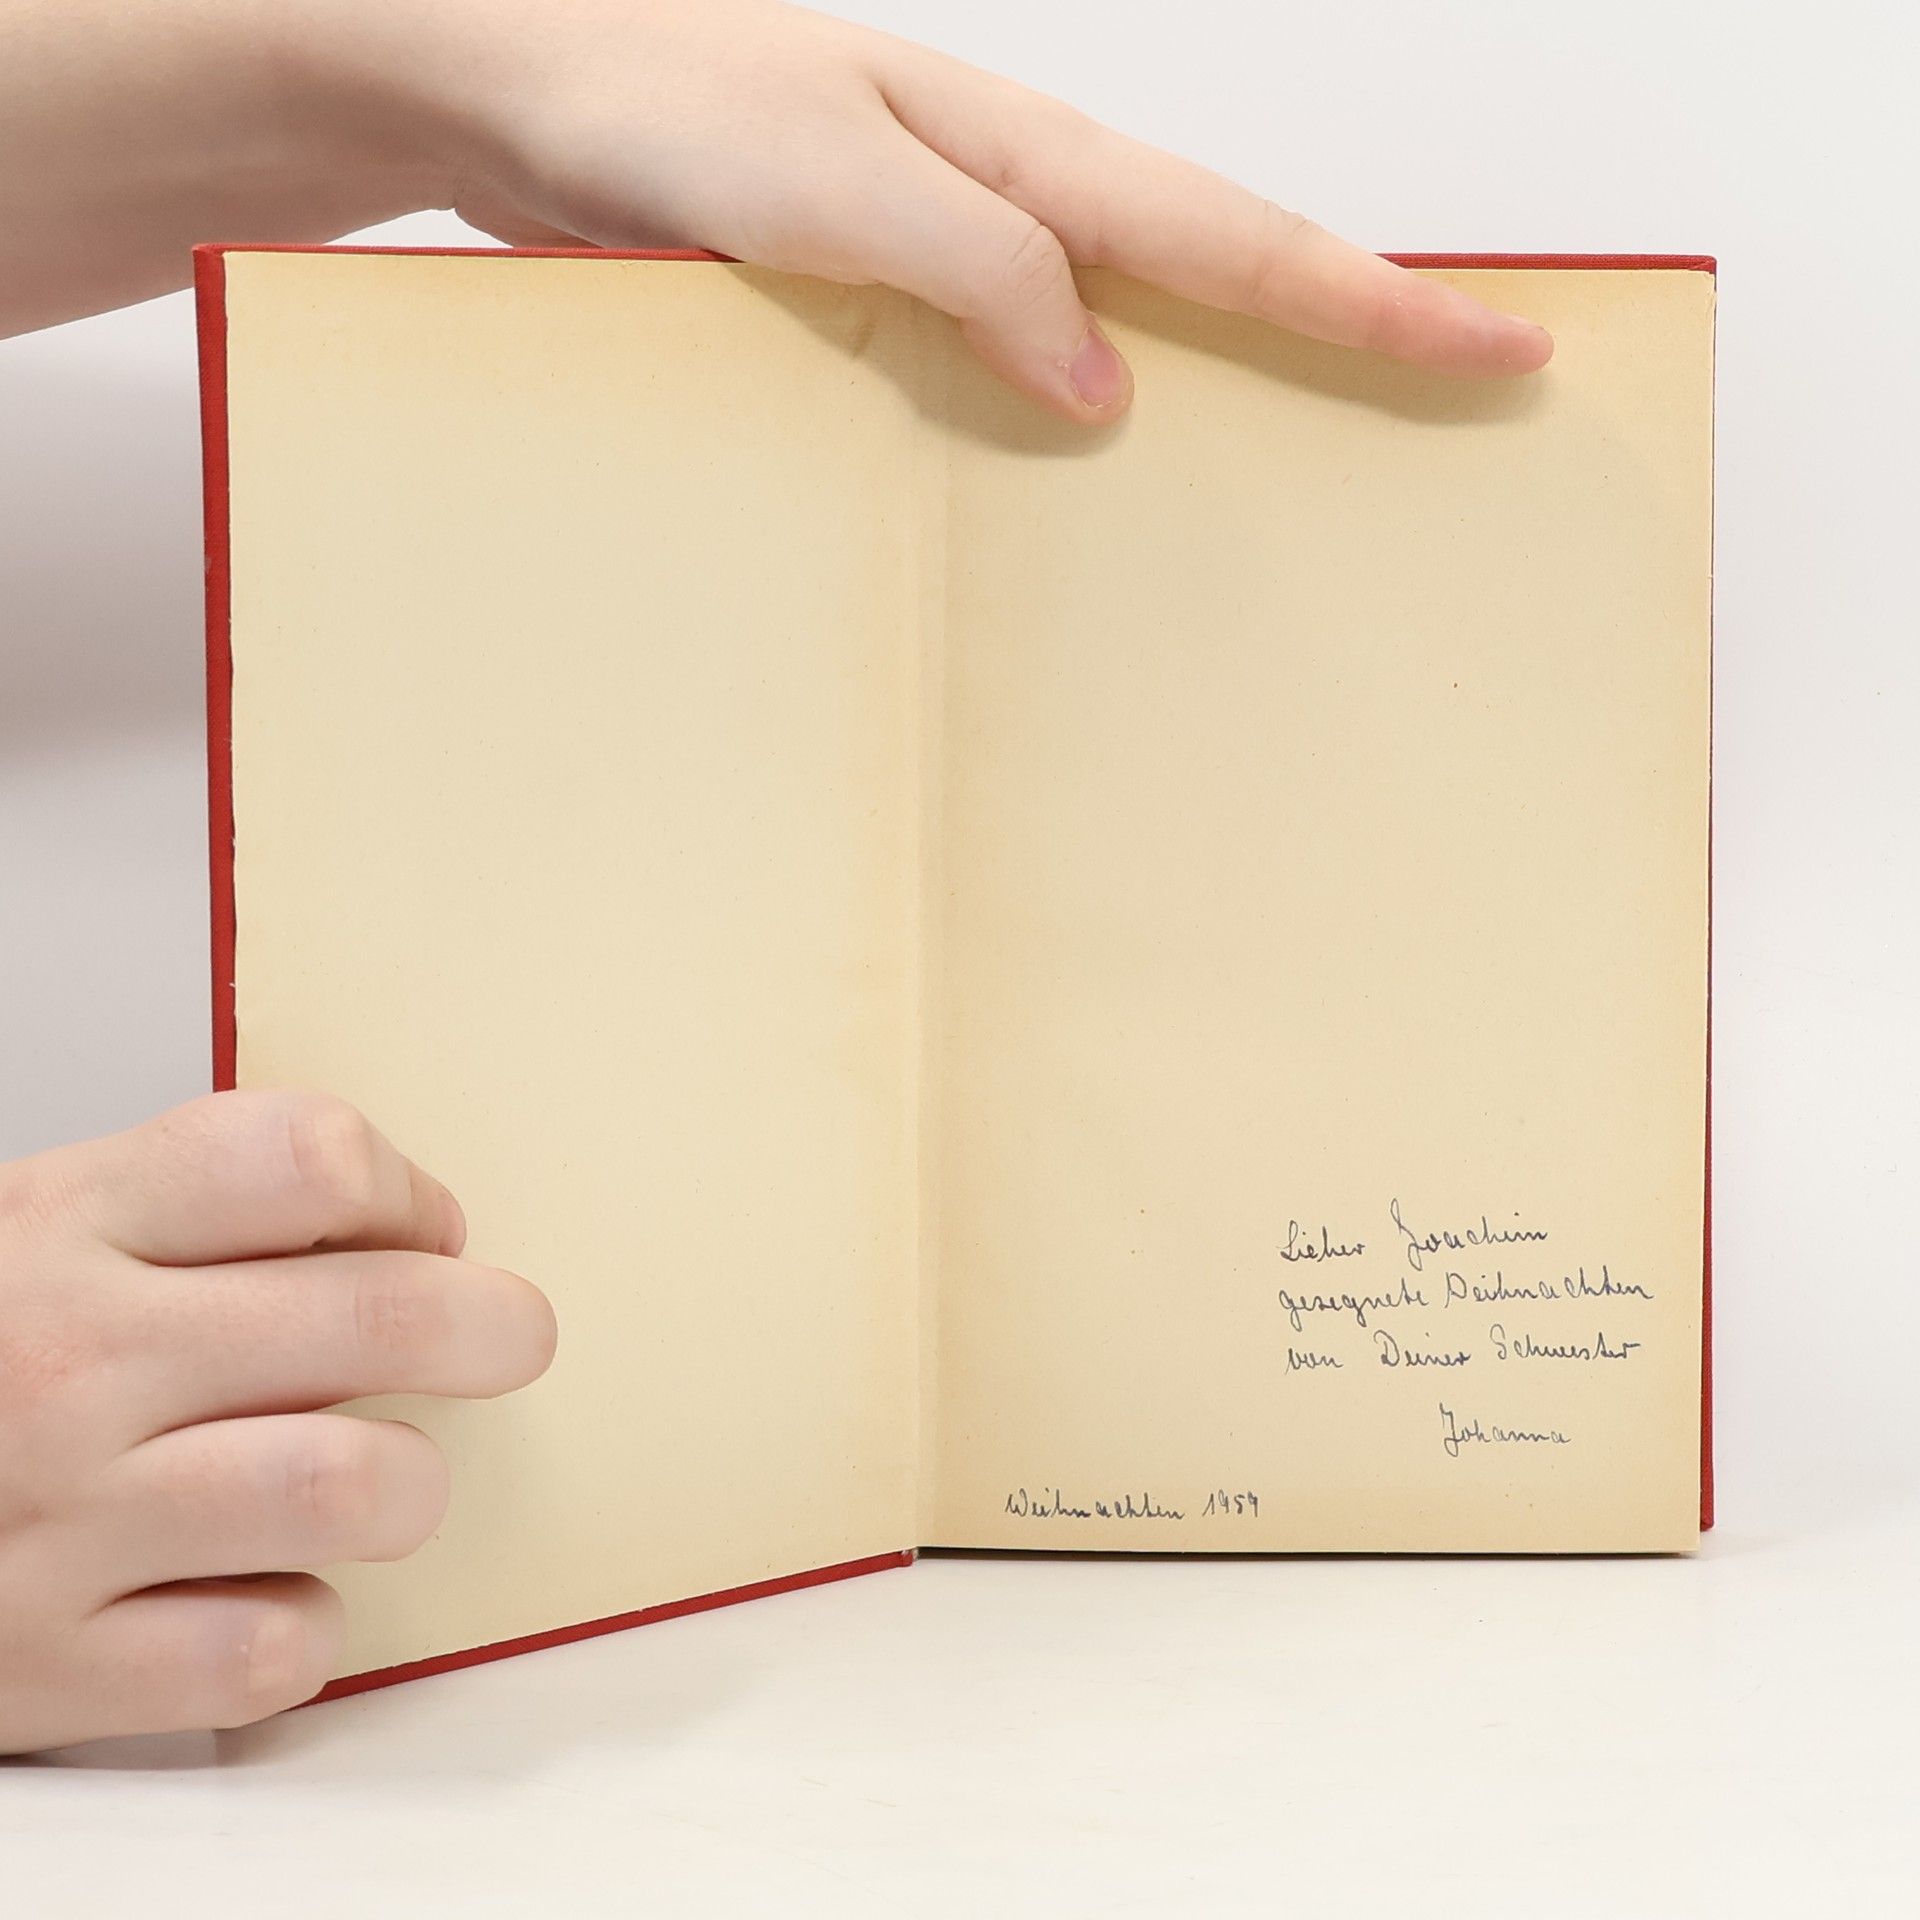 Lieber Joachim
gesegnete Weihnachten
von Deiner Schwester
Johanna
Weihnachten 1959